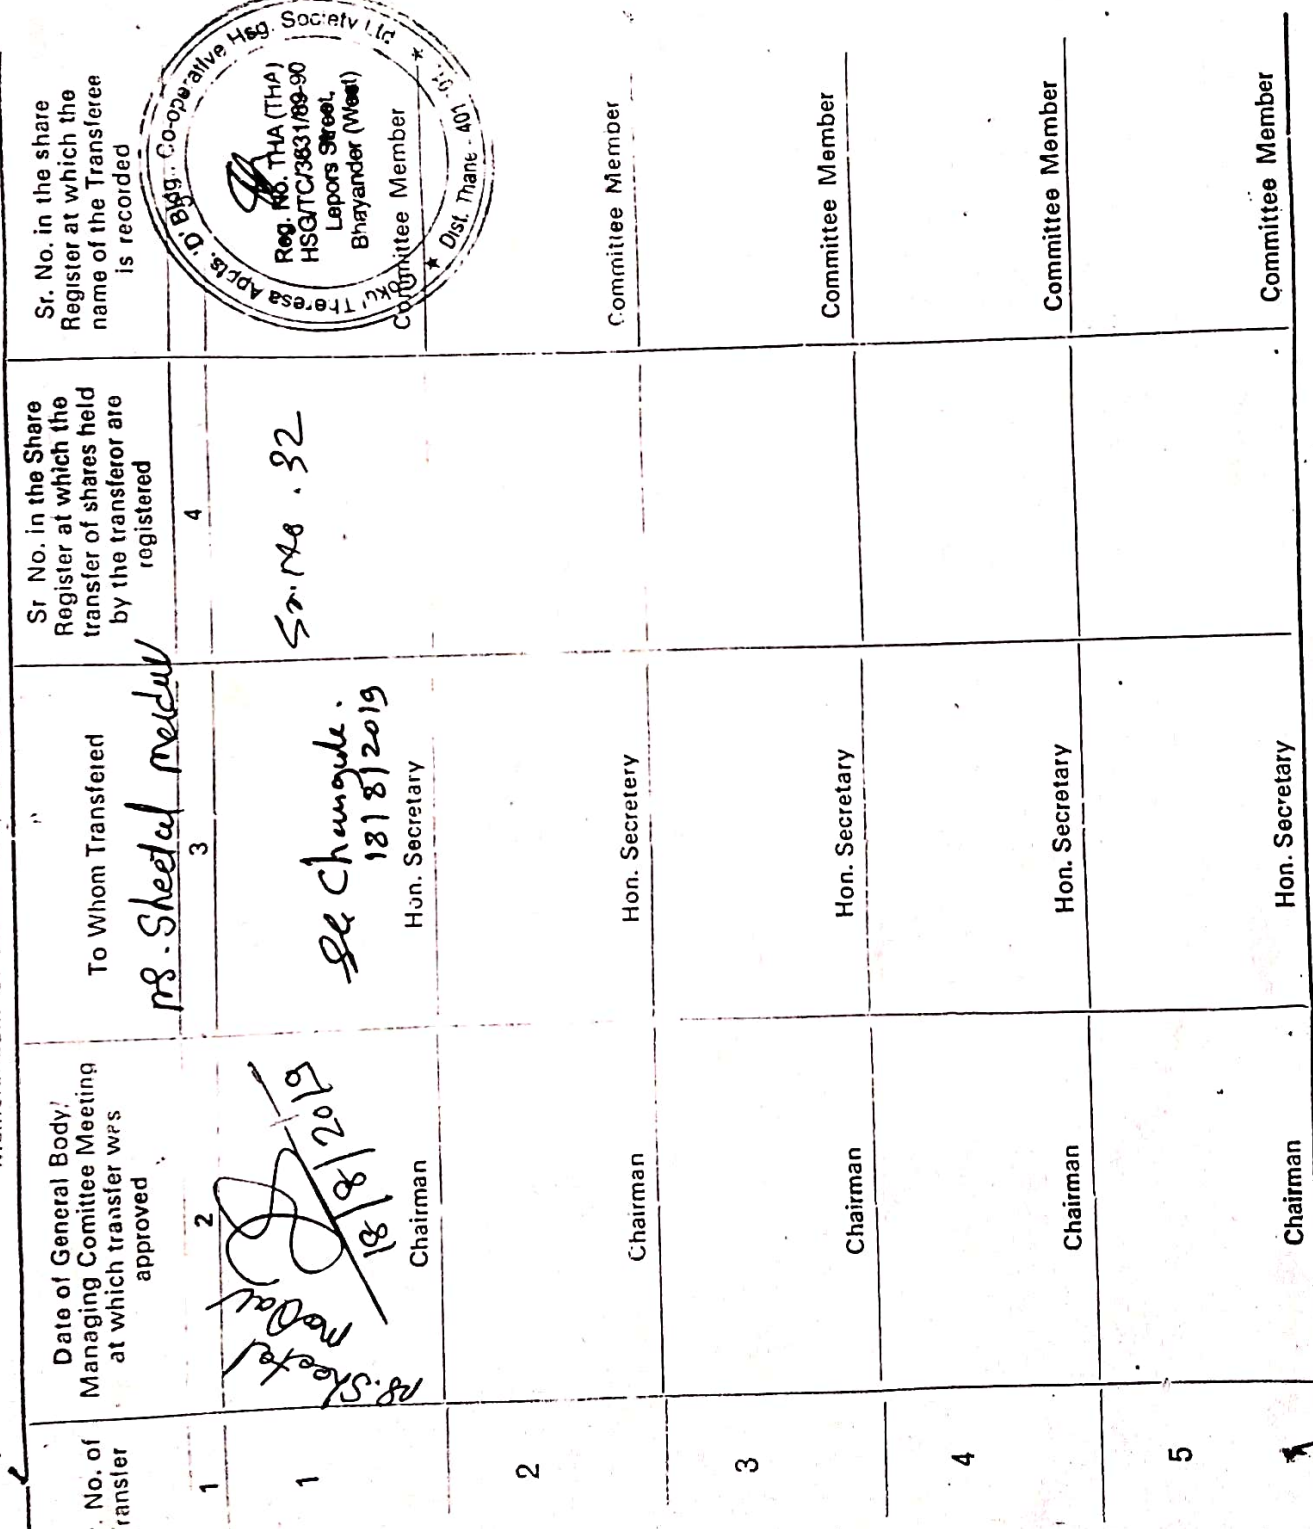 No. of
ransfer
Date of General Body/
Managing Comittee Meeting
at which transfer was
approved
To Whom Transfered
Sr No. in the Share
Register at which the
transfer of shares held
by the transferor are
registered
Sr. No. in the share
Register at which the
name of the Transferee
is recorded
1
2
3
4
Ms. Sheetal
1
Ms. Sheetal
18/8/2019
Chairman
18/8/2019
Hon. Secretary
Sr. No. 32
Theresa Appts. 'D' Bldg. Co-operative Hsg. Society Ltd
★ Dist. Thane - 401 ★
Reg. No. THA (THA)
HSG/TC/3631/89-90
Lepors Street,
Bhayander (West)
Committee Member
2
Chairman
Hon. Secretery
Committee Member
3
Chairman
Hon. Secretary
Committee Member
4
Chairman
Hon. Secretary
Committee Member
5
Chairman
Hon. Secretary
Committee Member